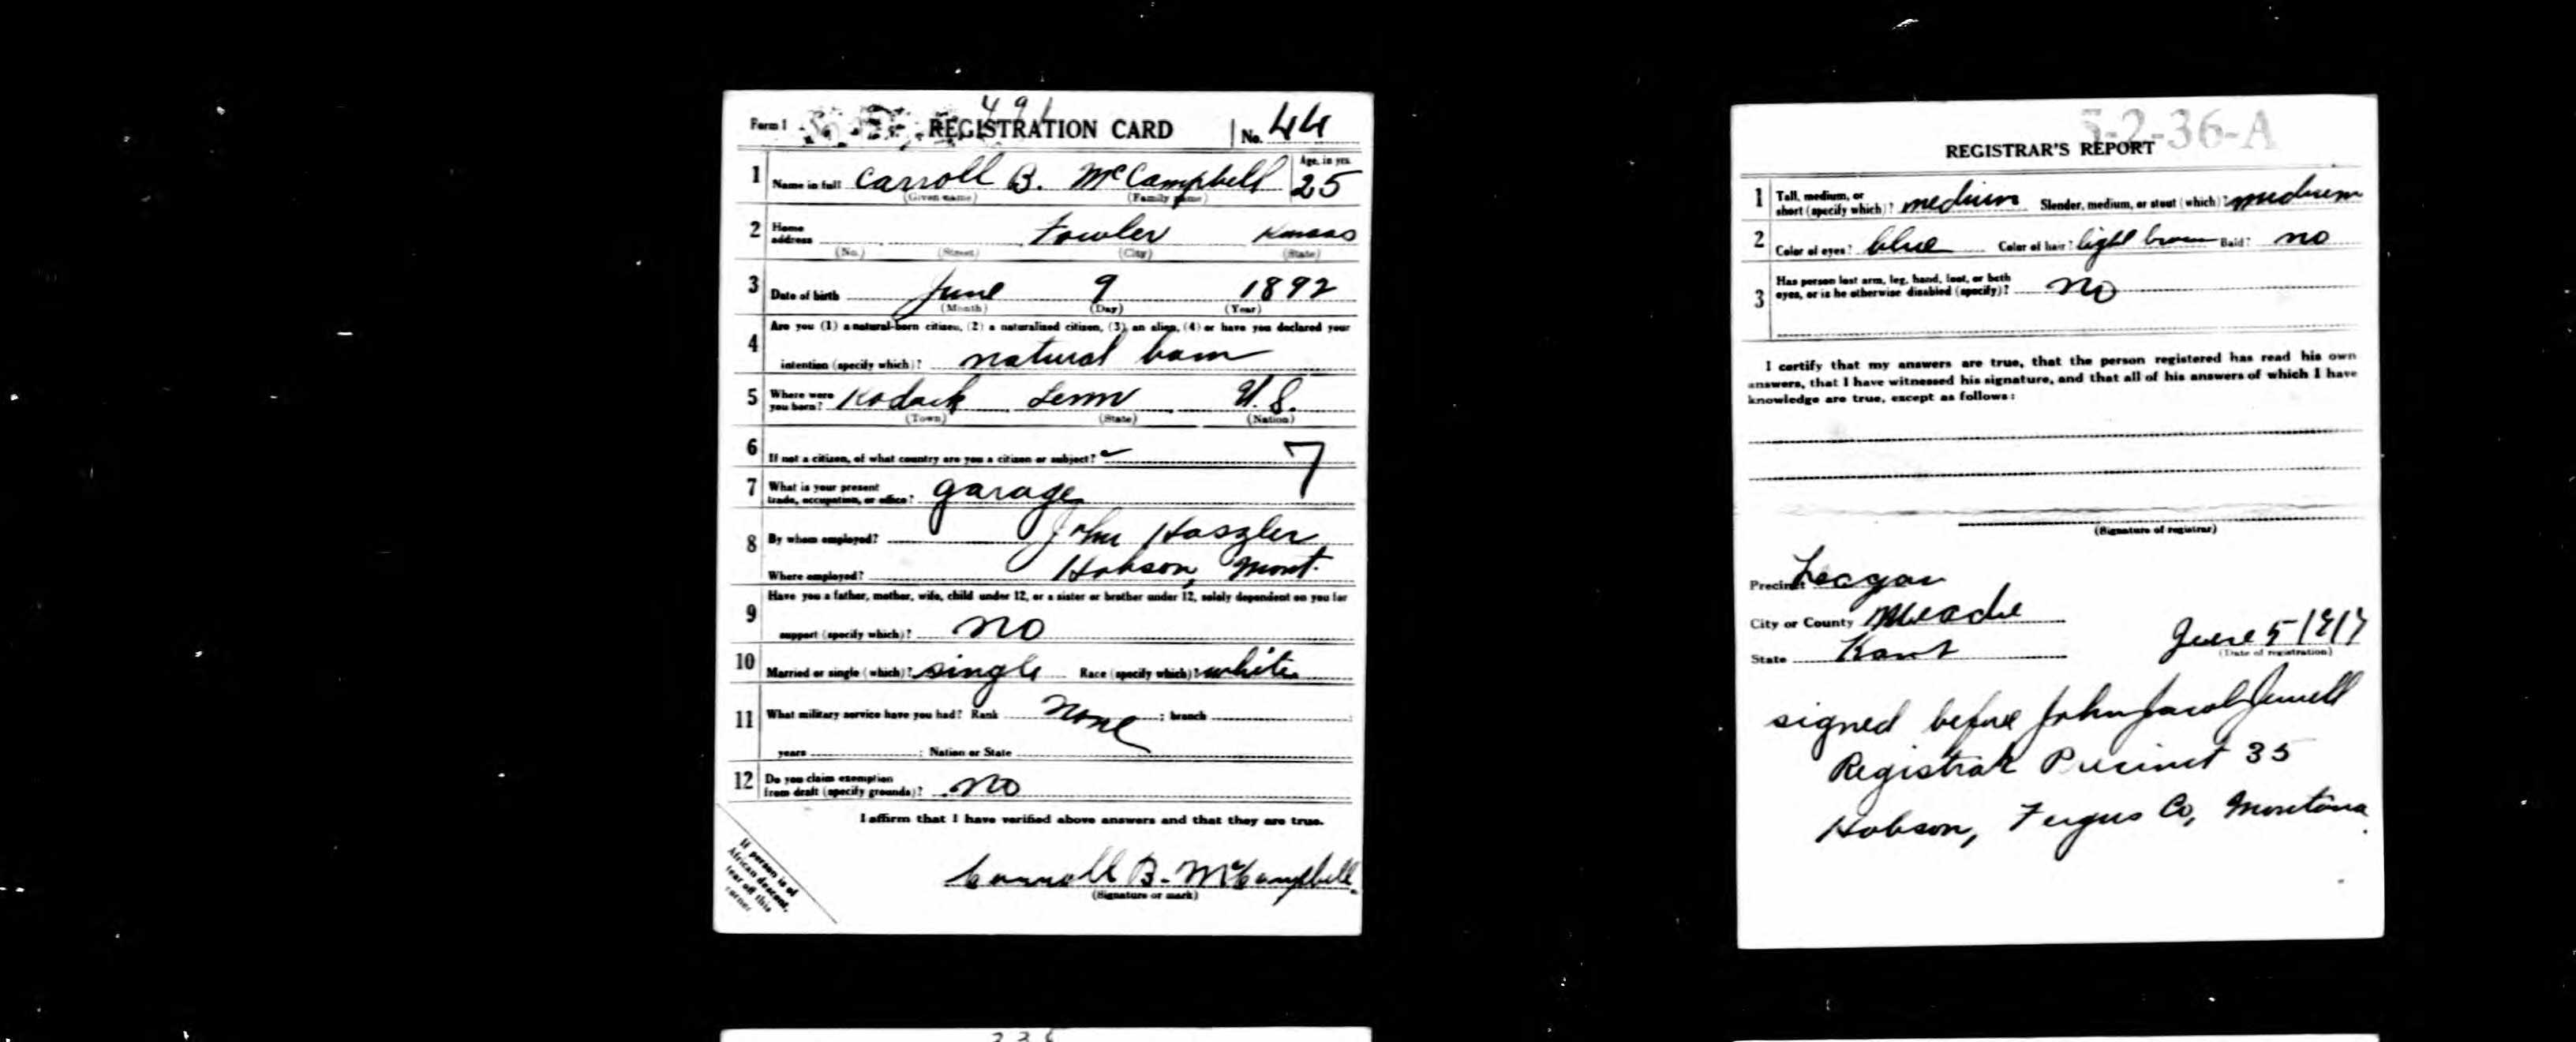 491
Form 1 REGISTRATION CARD No. 44
1 Name in full Carroll B. McCampbell Age, in yrs. 25
(Given name) (Family name)
2 Home address Fowler Kansas
(No.) (Street) (City) (State)
3 Date of birth June 9 1892
(Month) (Day) (Year)
Are you (1) a natural-born citizen, (2) a naturalized citizen, (3) an alien, (4) or have you declared your
4 intention (specify which)? natural born
5 Where were you born? Kodack Tenn U.S.
(Town) (State) (Nation)
6 If not a citizen, of what country are you a citizen or subject? 7
7 What is your present trade, occupation, or office? garage
8 By whom employed? John Haszler
Where employed? Hobson, Mont.
Have you a father, mother, wife, child under 12, or a sister or brother under 12, solely dependent on you for
9 support (specify which)? no
10 Married or single (which)? single Race (specify which)? white
11 What military service have you had? Rank none ; branch ;
years ; Nation or State
12 Do you claim exemption from draft (specify grounds)? no
I affirm that I have verified above answers and that they are true.
Carroll B. McCampbell
(Signature or mark)
If person is of
African descent,
tear off this
corner
5-2-36-A
REGISTRAR'S REPORT
1 Tall, medium, or short (specify which)? medium Slender, medium, or stout (which)? medium
2 Color of eyes? blue Color of hair? light brown Bald? no
3 Has person lost arm, leg, hand, foot, or both eyes, or is he otherwise disabled (specify)? no
I certify that my answers are true, that the person registered has read his own
answers, that I have witnessed his signature, and that all of his answers of which I have
knowledge are true, except as follows:
(Signature of registrar)
Precinct Logan
City or County Meade
State Kans June 5 1917
(Date of registration)
signed before John Jacob Jewell
Registrar Precinct 35
Hobson, Fergus Co, Montana.